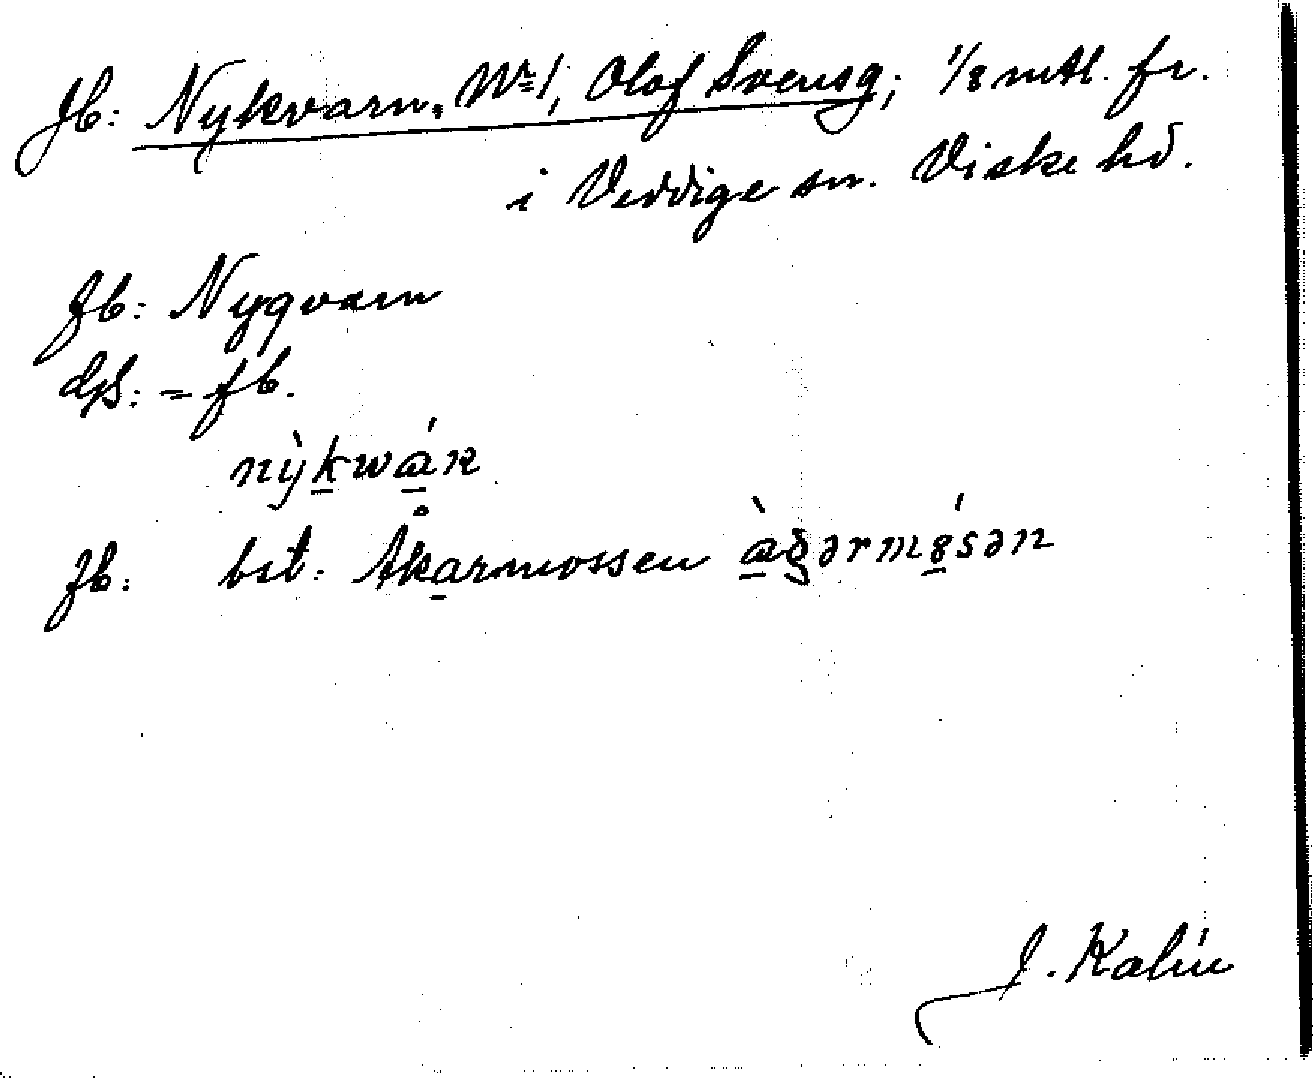 Jb: Nykvarn, Nr 1, Olof Svensg; 1/8 mtl. fr.
i Veddige sn. Viske hd.
fb: Nyqvarn
dps: = fb.
nỳk̲wá̲n
fb: bet. Åka̲rmossen à̲gərmǿ̲sən
J. Kalén